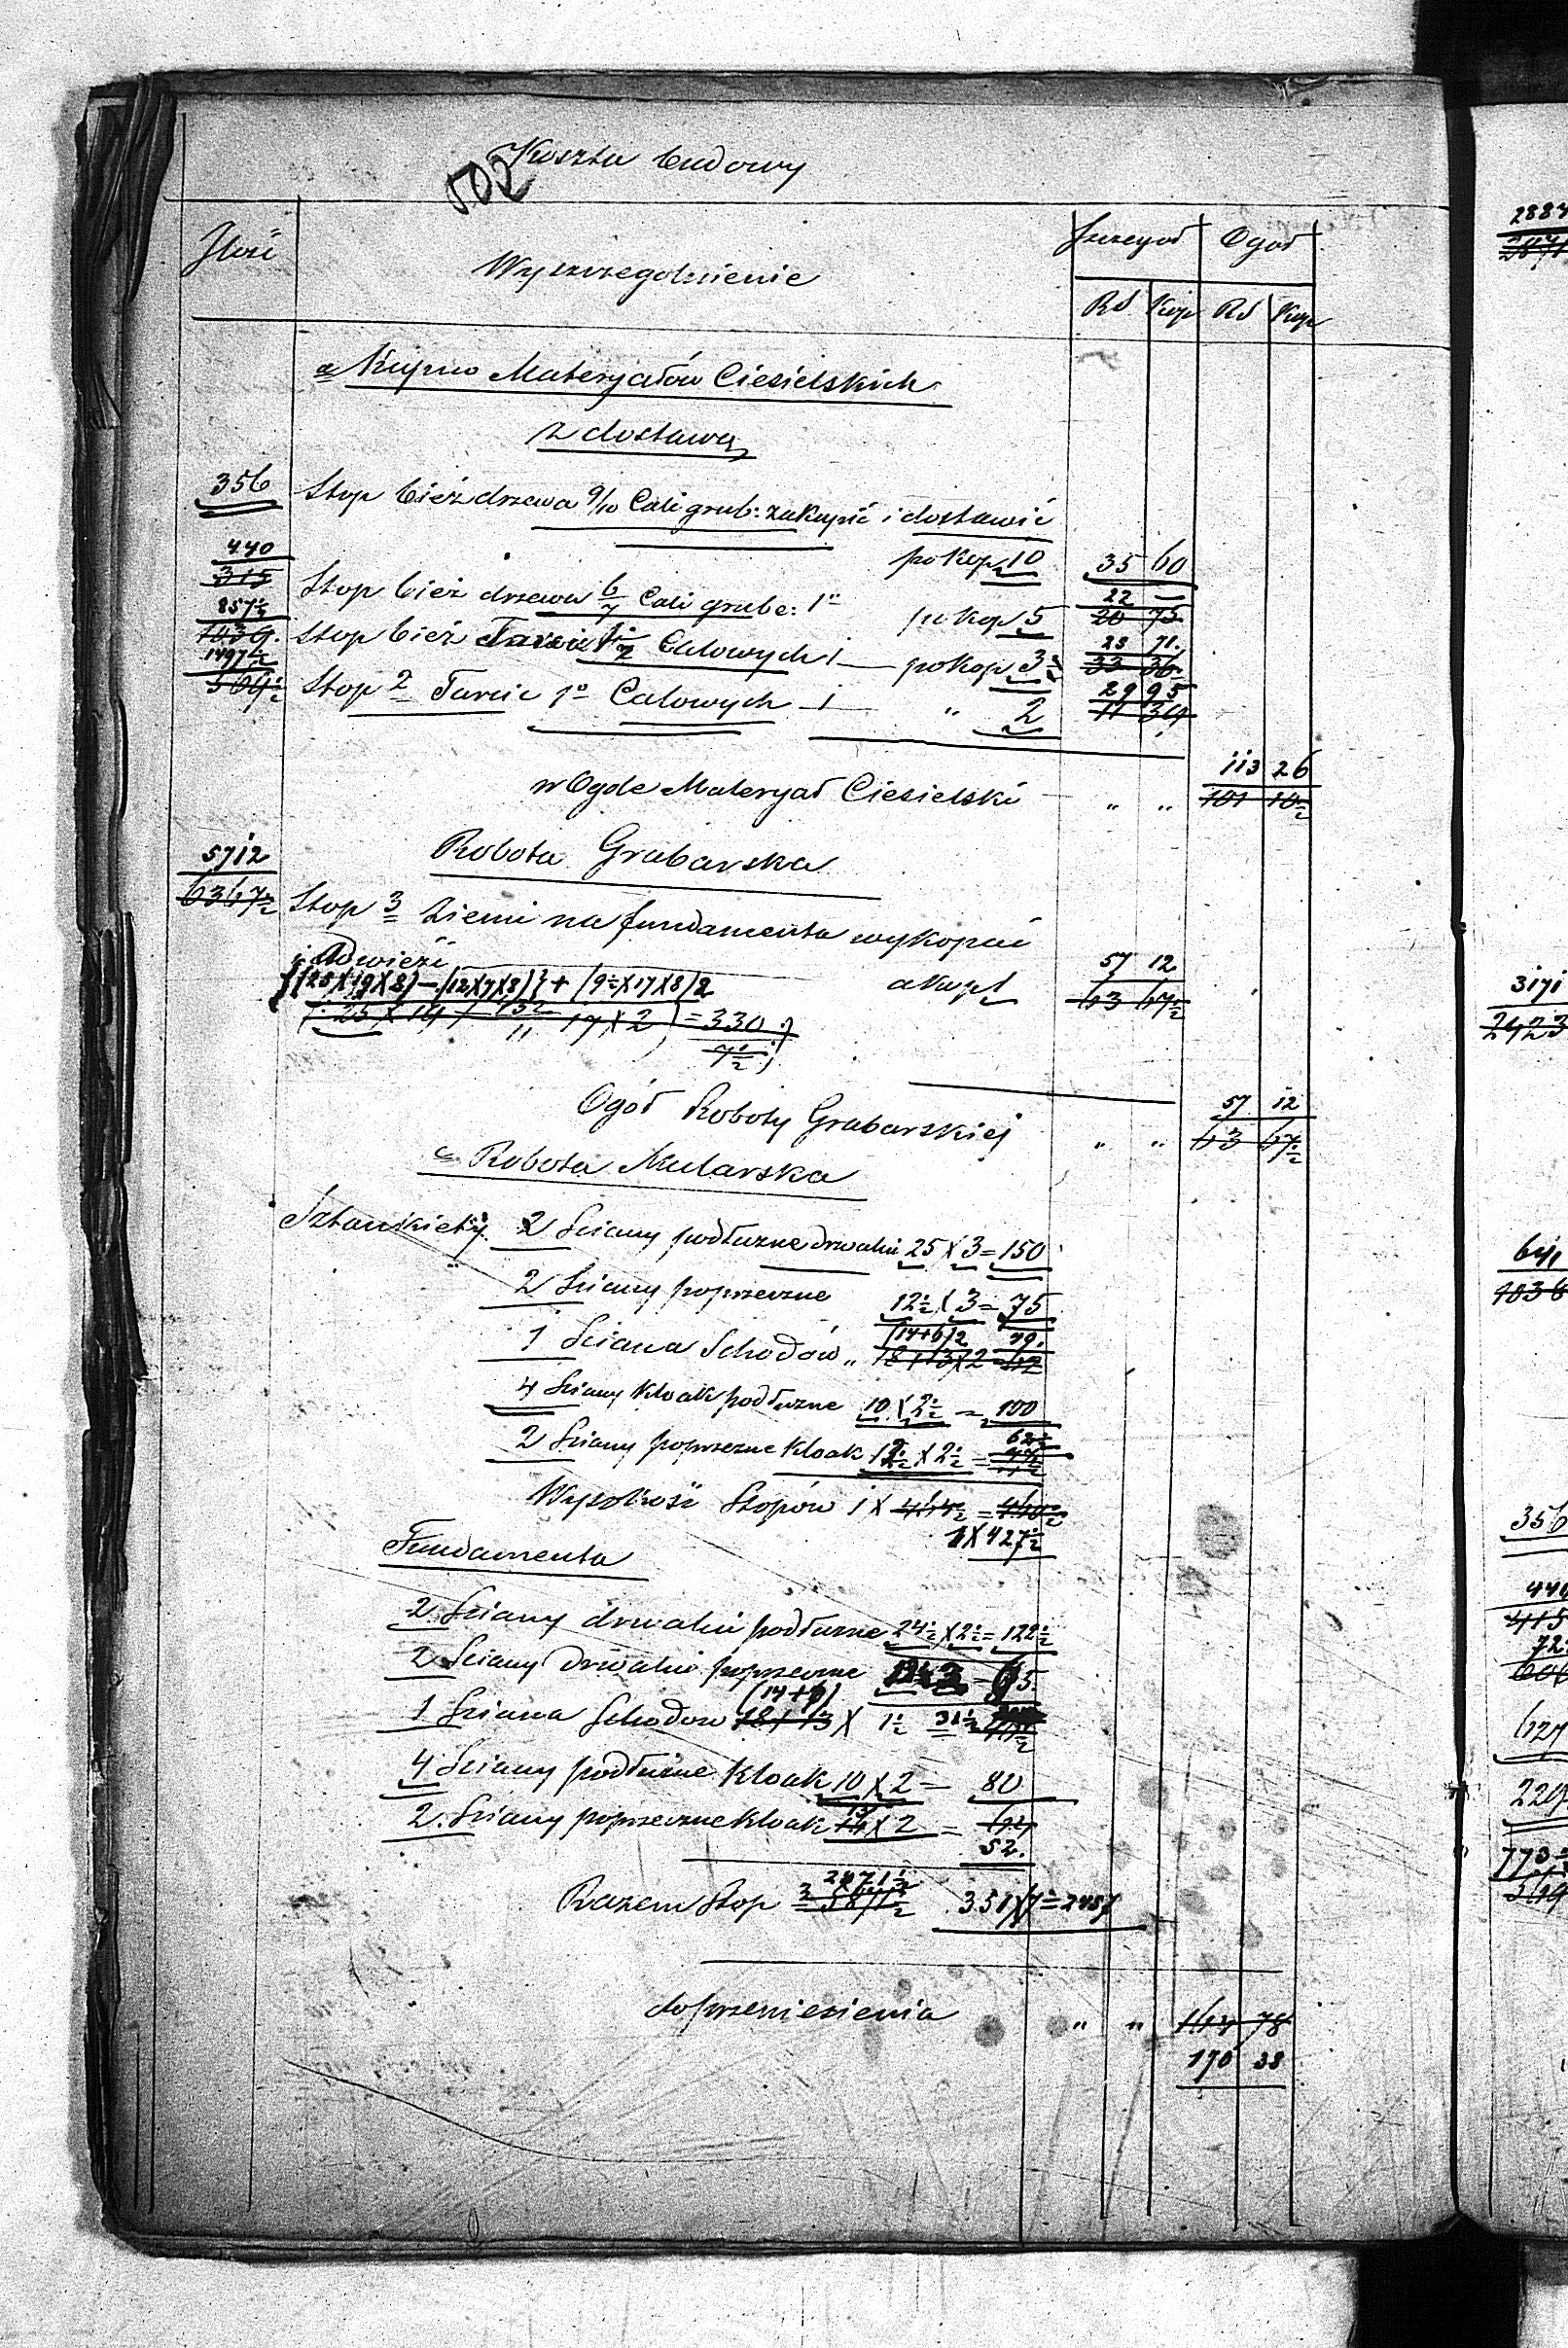 Koszta budowy
502
Ilość Wyszczegolnienie Szczegoł Ogoł
RS Kop RS Kop
a Kupno Materyałów Ciesielskich
z dostawą
356 Stop bież drzewa 9/10 Cali grub: zakupić i dostawić
po kop 10 35 60
440 22 —
315 Stop bież drzewa 6/7 Cali grube: 1" po kop 5 20 75
857½ 25 71
Stop bież Tarcic 1½ Calowych 1 — po kop 3 33 36
1497½ 29 95
569½ Stop 2 Tarcic 1" Calowych 1 — " 2 11 39
113 26
w Ogole Materyał Ciesielski " " 101 10½
5712 Robota Grabarska
6367½ Stop 3 Ziemi na fundamenta wykopać
i Odwieźć a kop 1 57 12
{(25X19X8)—(12X7X8)}+(9½X17X8)2 63 67½
17 X 2 = 330
7½
57 12
Ogół Roboty Grabarskiej " " 63 67½
c Robota Mularska
Sztankiety. 2 Sciany podłużne drwalni 25 X 3 = 150
2 Sciany poprzeczne 12½ X 3 = 75
(14+6)2 40.
1 Sciana Schodów " 18+13X2=62
4 Sciany Kloak podłużne 10 X 2½ = 100
62½
2 Sciany poprzeczne Kloak 12½ X 2½ =
Wysokość Stopów 1 X 464½ = 460½
1 X 427½
Fundamenta
2 Sciany drwalni podłużne 24½ X 2½ = 122½
2 Sciany Drwalni poprzeczne 65
(14+6)
1 Sciana Schodow 18+13 X 1½ 31½
4 Sciany podłużne Kloak 10 X 2 = 80
13
2. Sciany poprzeczne Kloak 14 X 2 = 64
52.
2871½
Razem Stop 3 351 X 7 = 2457
do przeniesienia " " 164 78
170 38
2887
2871
3171
2423
641
356
440
415
72
627
229
773